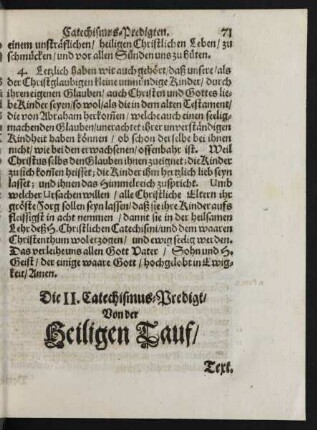 Catechismus-Predigten. 71
einem unsträflichen/ heiligen Christlichen Leben/ zu
schmücken/ und vor allen Sünden uns zu hüten.
4. Letzlich haben wir auch gehört/ daß unsere/ als
der Christglaubigen kleine unmündige Kinder/ durch
ihren eigenen Glauben/ auch Christen und Gottes lie-
be Kinder seyen/ so wol/ als die in dem alten Testament/
die von Abraham herkom̃en/ welche auch einen seelig-
machenden Glauben/ unerachtet ihrer unverständigen
Kindheit haben können/ ob schon derselbe bei ihnen
nicht/ wie bei den erwachsenen/ offenbahr ist. Weil
Christus selbs den Glauben ihnen zueignet: die Kinder
zu sich kom̃en heisset; die Kinder ihm hertzlich lieb seyn
lasset; und ihnen das Himmelreich zuspricht. Umb
welcher Ursachen willen/ alle Christliche Eltern ihr
gröste Sorg sollen seyn lassen/ daß sie ihre Kinder aufs
fleissigst in acht nemmen/ damit sie in der heilsamen
Lehr deß H. Christlichen Catechismi/ und dem waaren
Christenthum wol erzogen/ und ewig seelig werden.
Das verleihe uns allen Gott Vater/ Sohn und H.
Geist/ der einige waare Gott/ hochgelobt in Ewig-
keit/ Amen.
Die II. Catechismus-Predigt/
Von der
Heiligen Tauf/
Text.